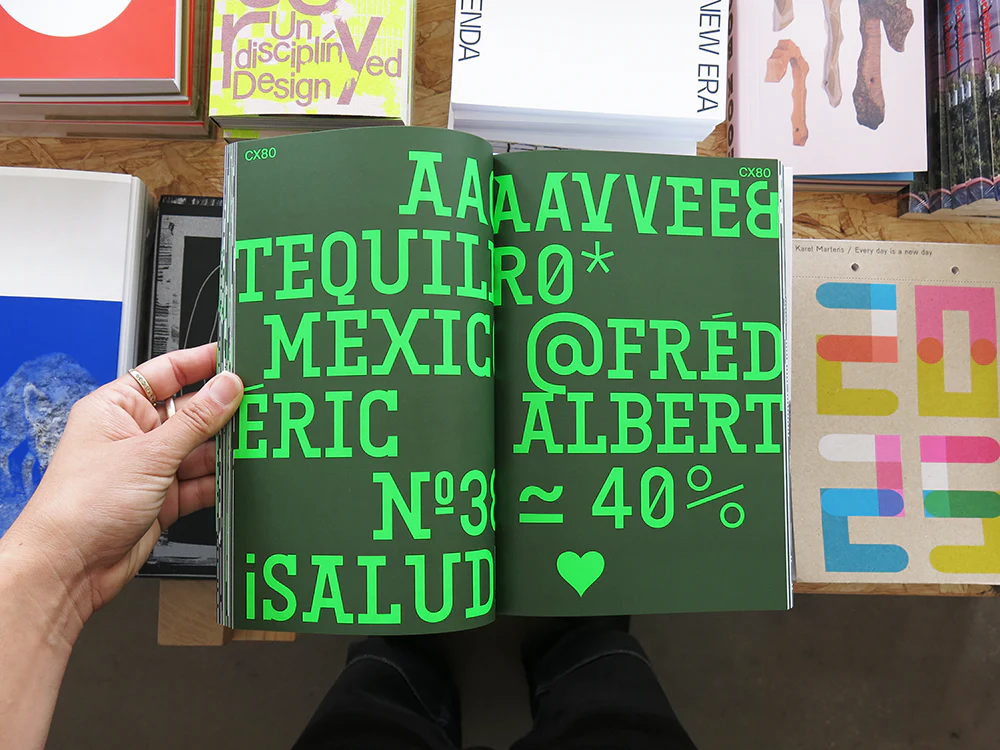 Un
disciplín
yed
Design
ENDA
NEW ERA
CX80
AA
TEQUIL
MEXIC
ÉRIC
Nº38
¡SALUD
CX80
AAVVEE&
R0*
@FRÉD
ALBERT
≃ 40%
♥
Karel Martens / Every day is a new day